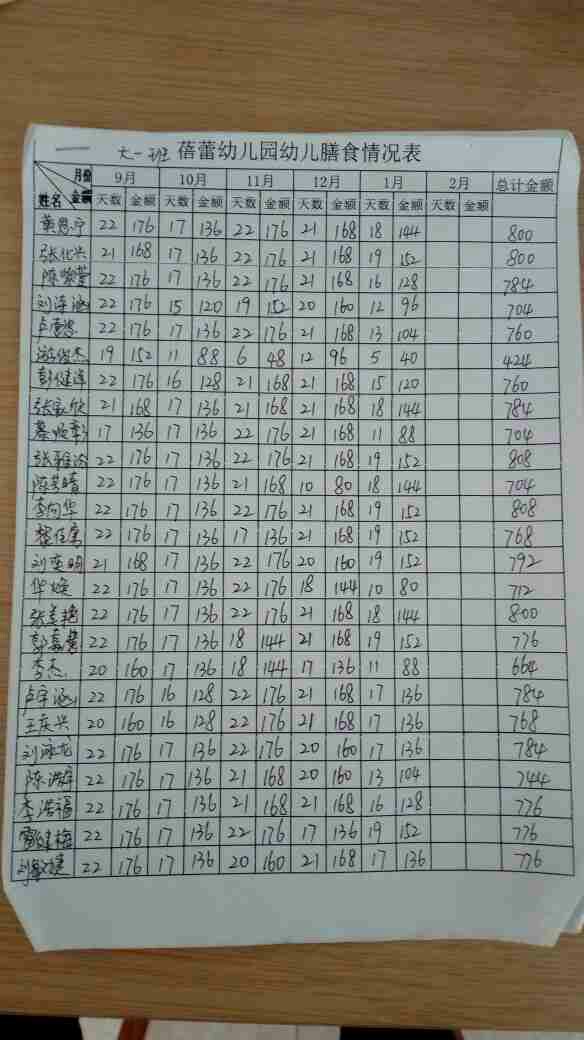 大一班 蓓蕾幼儿园幼儿膳食情况表
月份 9月 10月 11月 12月 1月 2月 总计金额
金额
姓名 天数 金额 天数 金额 天数 金额 天数 金额 天数 金额 天数 金额
黄思宁 22 176 17 136 22 176 21 168 18 144 800
张化兴 21 168 17 136 22 176 21 168 19 152 800
陈 22 176 17 136 22 176 21 168 16 128 784
刘泽涵 22 176 15 120 19 152 20 160 12 96 704
卢 22 176 17 136 22 176 21 168 13 104 760
游俊杰 19 152 11 88 6 48 12 96 5 40 424
彭健泽 22 176 16 128 21 168 21 168 15 120 760
张家欣 21 168 17 136 21 168 21 168 18 144 784
蔡 17 136 17 136 22 176 21 168 11 88 704
张雅 22 176 17 136 22 176 21 168 19 152 808
陈 22 176 17 136 21 168 10 80 18 144 704
李向华 22 176 17 136 22 176 21 168 19 152 808
22 176 17 136 17 136 21 168 19 152 768
刘奕明 21 168 17 136 22 176 20 160 19 152 792
华 22 176 17 136 22 176 18 144 10 80 712
张美艳 22 176 17 136 22 176 21 168 18 144 800
22 176 17 136 18 144 21 168 19 152 776
李杰 20 160 17 136 18 144 17 136 11 88 664
卢宇涵 22 176 16 128 22 176 21 168 17 136 784
王庆兴 20 160 16 128 22 176 21 168 17 136 768
刘泳龙 22 176 17 136 22 176 20 160 17 136 784
陈浩宇 22 176 17 136 21 168 20 160 13 104 744
李浩福 22 176 17 136 21 168 21 168 16 128 776
22 176 17 136 22 176 17 136 19 152 776
刘 22 176 17 136 20 160 21 168 17 136 776